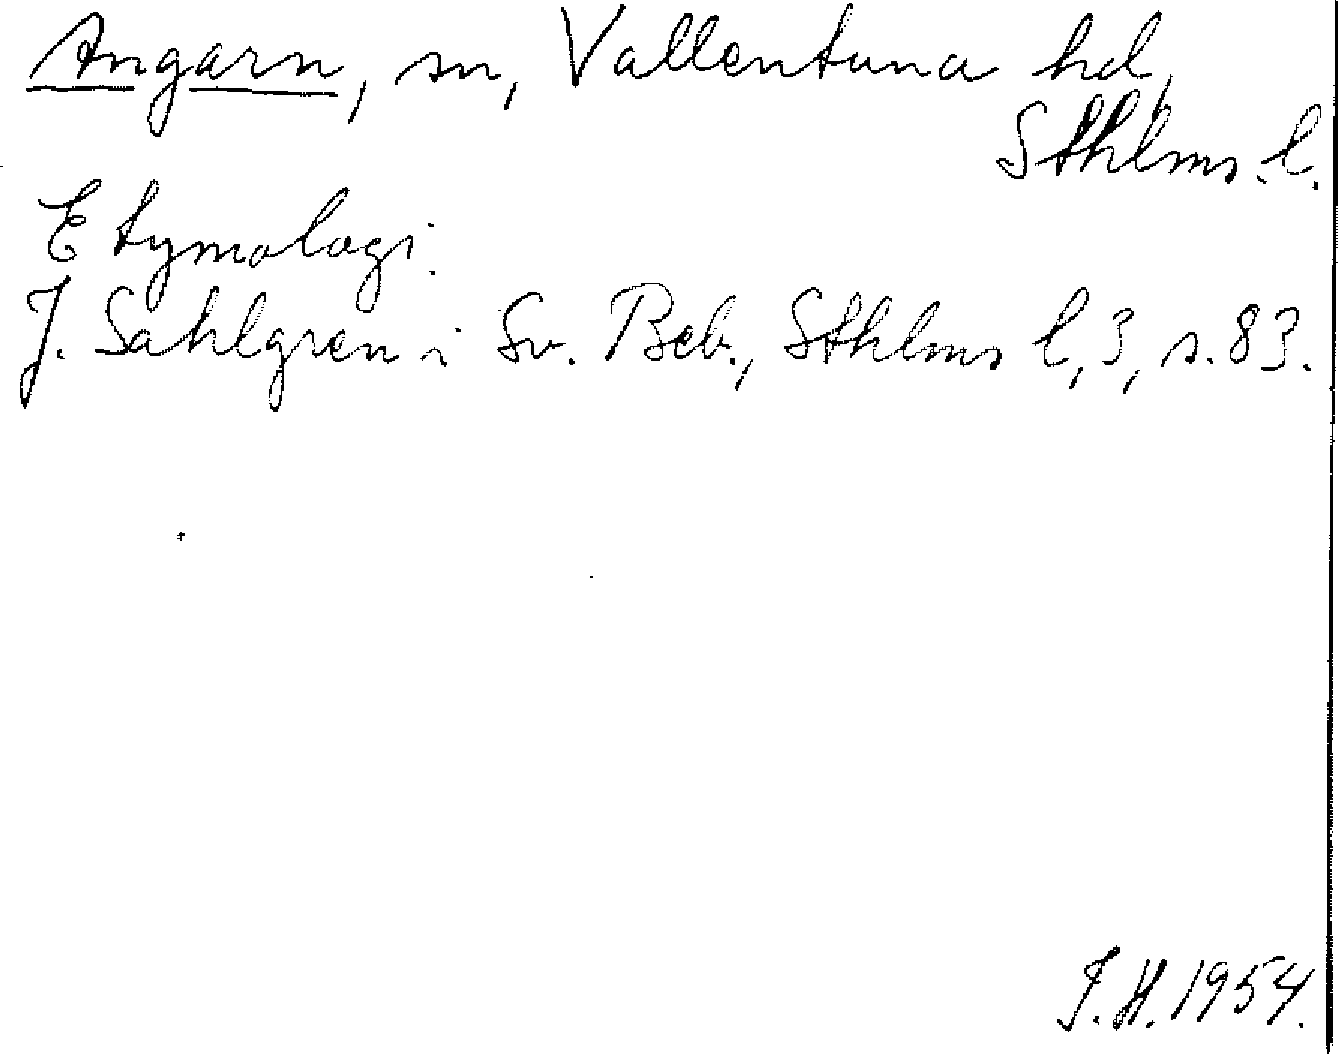 Angarn, sn, Vallentuna hd,
Sthlms l.
Etymologi.
J. Sahlgren i Sv. Beb., Sthlms l, 3, s. 83.
J.H. 1954.